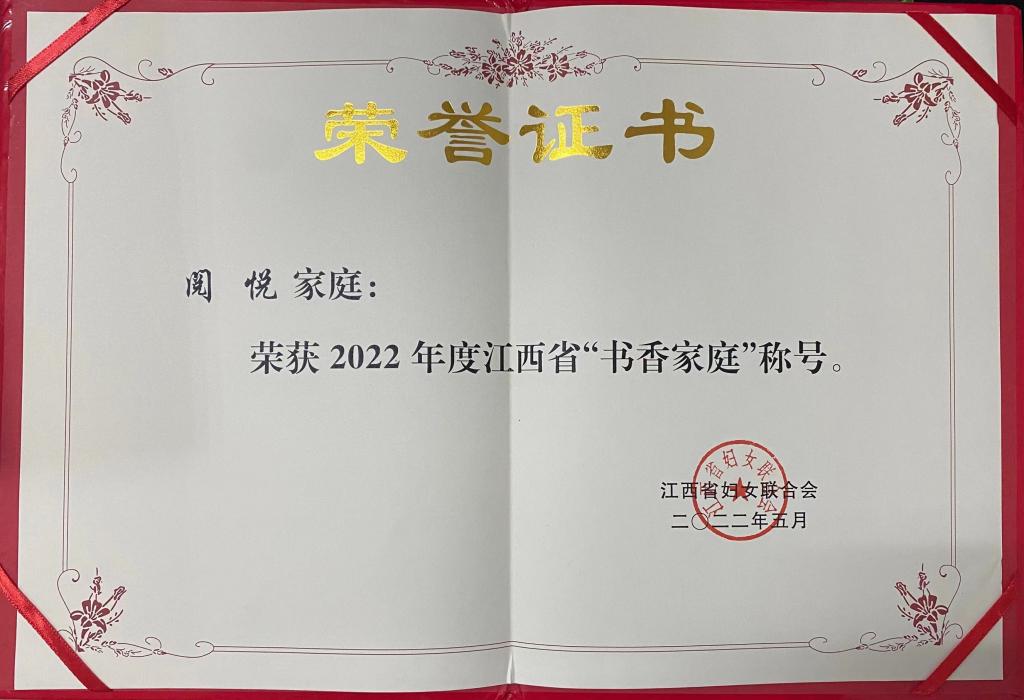 荣誉证书
阅 悦 家庭：
荣获 2022 年度江西省“书香家庭”称号。
江西省妇女联合会
江西省妇女联合会
二〇二二年五月